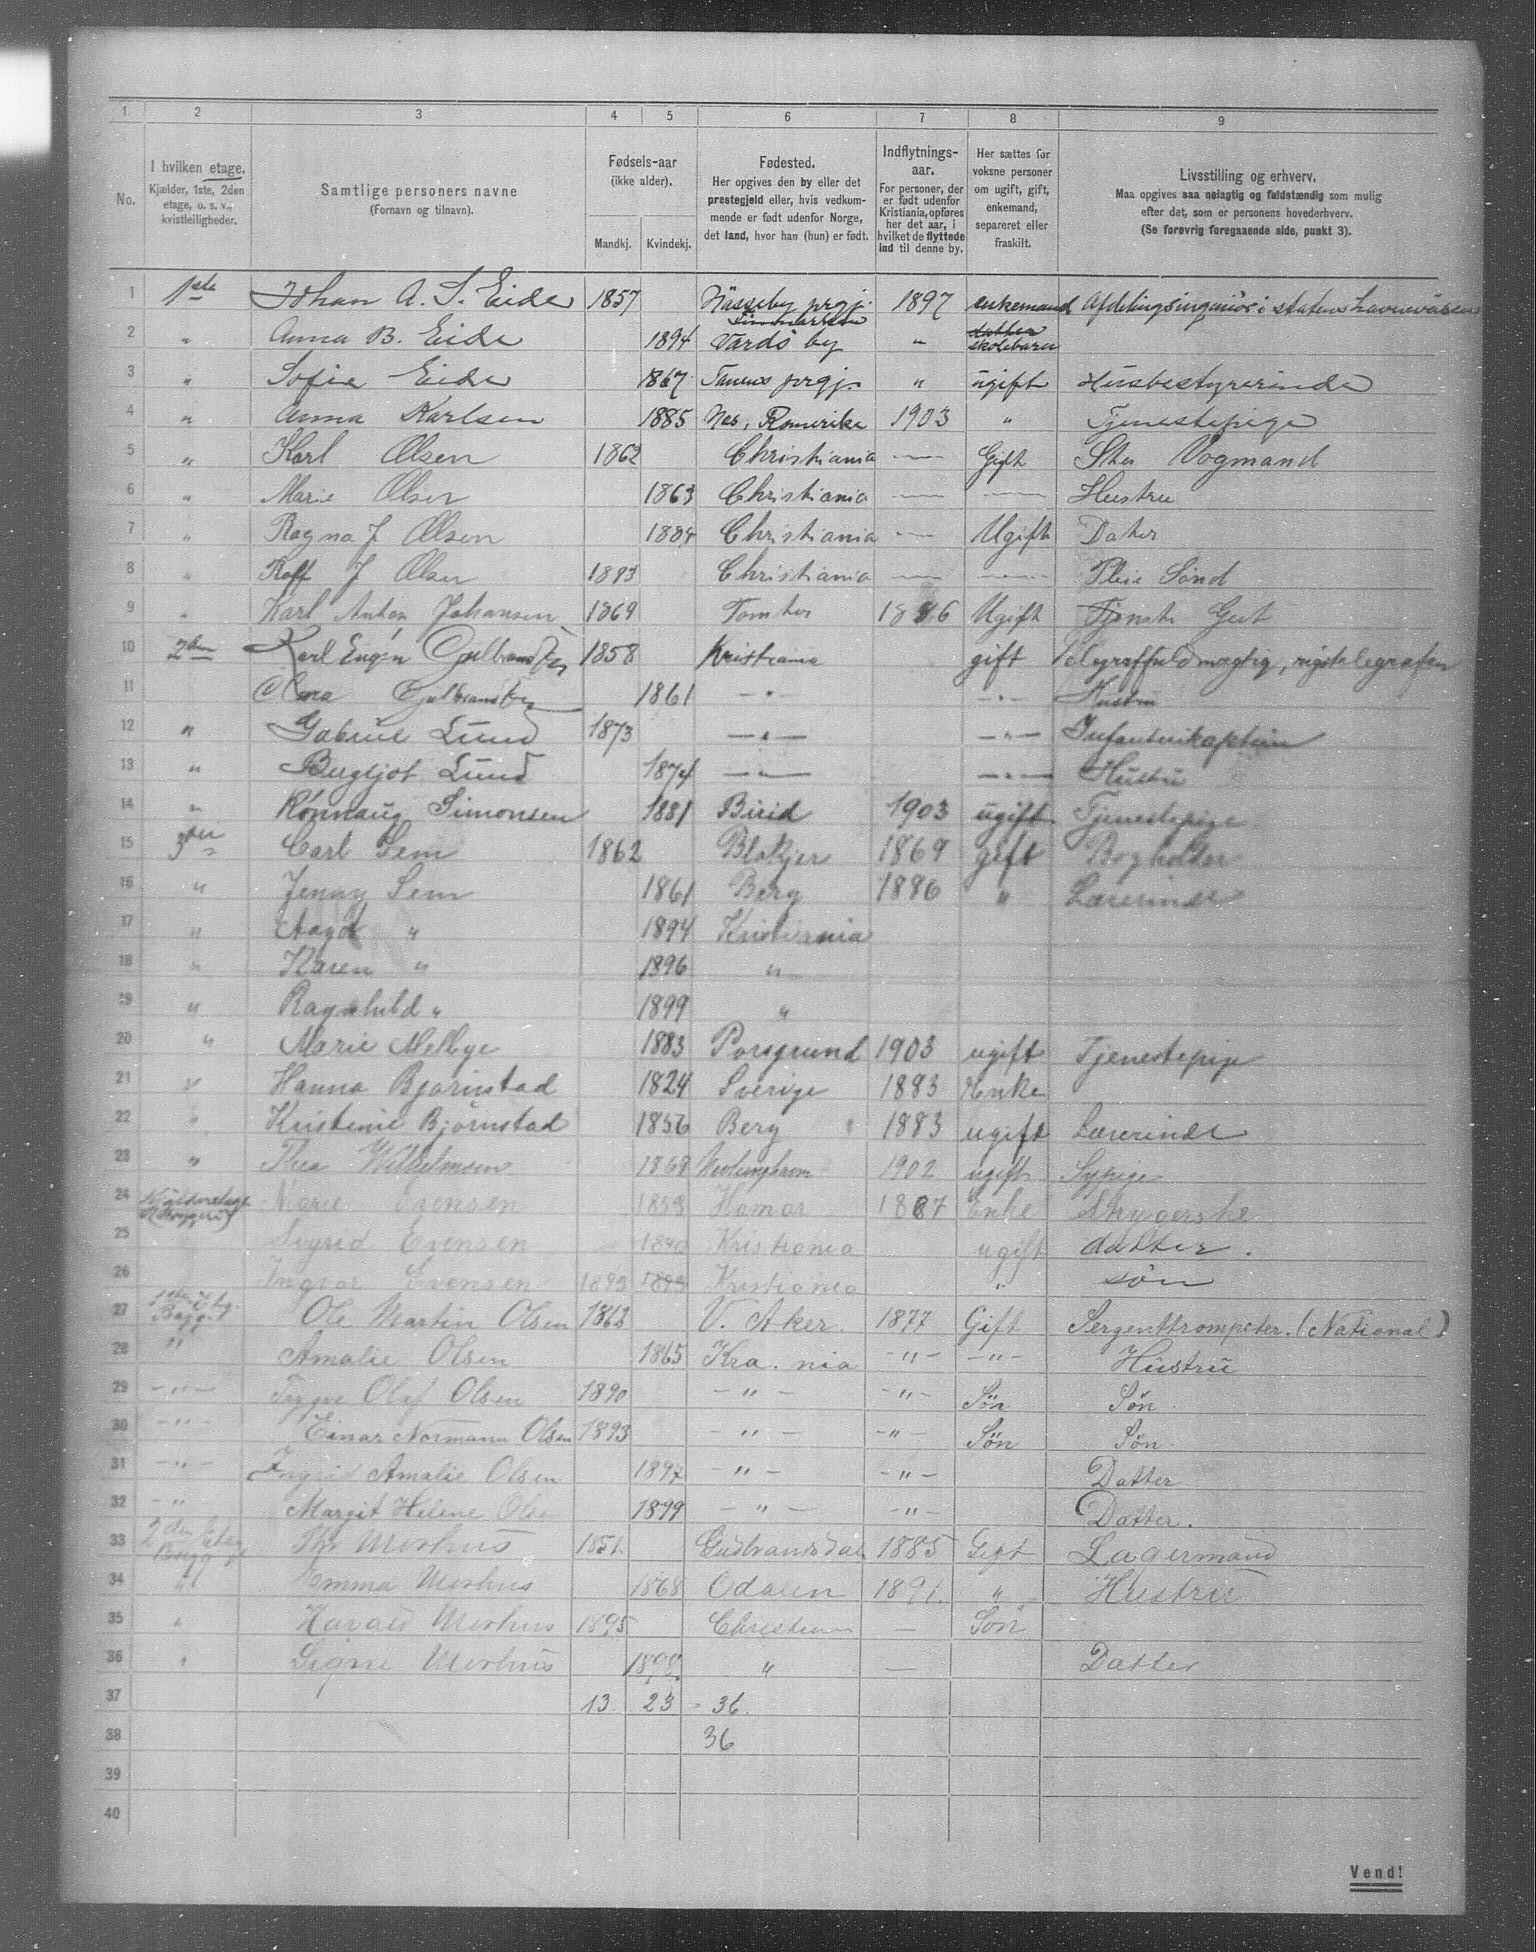 1 2 3 4 5 6 7 8 9
No.
I hvilken etage.
Kjælder, 1ste, 2den
etage, o. s. v.,
kvistleiligheder.
Samtlige personers navne
(Fornavn og tilnavn).
Fødsels-aar
(ikke alder).
Mandkj. Kvindekj.
Fødested.
Her opgives den by eller det
prestegjeld eller, hvis vedkom-
mende er født udenfor Norge,
det land, hvor han (hun) er født.
Indflytnings-
aar.
For personer, der
er født udenfor
Kristiania, opføres
her det aar, i
hvilket de flyttede
ind til denne by.
Her sættes før
voksne personer
om ugift, gift,
enkemand,
separeret eller
fraskilt.
Livsstilling og erhverv.
Maa opgives saa nøiagtig og fuldstændig som mulig
efter det, som er personens hovederhverv.
(Se forøvrig foregaaende side, punkt 3).
1 1ste Johan A. S. Eide 1857 Næsseby prgj. 1897 enkemand Afdelingsingeniør i statens havnevæsen
2 " Anna B. Eide 1894 Vardö by " datter skolebarn
3 " Sofie Eide 1867 prgj. " ugift Husbestyrerinde
4 " Anna Karlsen 1885 Nes, Romerike 1903 " Tjenestepige
5 " Karl Olsen 1862 Christiania — Gift Vogmand
6 " Marie Olsen 1863 Christiania — — Hustru
7 " Ragna J Olsen 1884 Christiania — Ugift Dater
8 " Rolf J Olsen 1893 Christiania — — Sönd
9 " Karl Anton Johansen 1869 Tomter 1886 Ugift Tjenste Gut
10 2den Karl Eugen Gulbrandsen 1858 Kristiania gift Telegraffuldmægtig, rigstelegrafen
11 Clara Gulbrandsen 1861 — " — — " — Hustru
12 " Gabriel Lund 1873 — " — — " — Infanterikaptein
13 " Bergljot Lund 1874 — " — — " — Hustru
14 " Rønnaug Simonsen 1881 Birid 1903 ugift Tjenestepige
15 3die Carl Sem 1862 Blakjer 1869 gift Bogholder
16 " Jenny Sem 1861 Berg 1886 " Lærerinde
17 " Aagot " 1894 Kristiania
18 " Karen " 1896 "
19 " Ragnhild " 1899 "
20 " Marie Melbye 1883 Porsgrund 1903 ugift Tjenestepige
21 " Hanna Bjørnstad 1824 Sverige 1883 Enke
22 " Kristine Bjørnstad 1856 Berg 1883 ugift Lærerinde
23 " Thea Wilhelmsen 1868 1902 ugift Sypige
24 Kjelderetage Marie Evensen 1859 Hamar 1887 Enke
25 Sigrid Evensen 1890 Kristiania ugift datter.
26 Ingvar Evensen 1893 1893 Kristiania " søn
27 Ole Martin Olsen 1862 V. Aker. 1877 Gift Sergenttrompeter. (National)
28 " Amalie Olsen 1865 Kra. nia — " — — " — Hustru
29 — " — Trygve Olaf Olsen 1890 — " — — " — Søn Søn
30 — " — Einar Normann Olsen 1893 — " — — " — Søn Søn.
31 — " — Ingrid Amalie Olsen 1897 — " — — " — Datter
32 — " Margit Helene Olsen 1899 — " — — " — Datter.
33 2den Etag Bagg. Morhus 1851 Gudbransdal 1885 Gift Lagermand
34 " Emma Morhus 1868 Odalen 1891. " Hustru
35 " Havald Morhus 1895 — Søn
36 " Signe Morhus 1898. " — Datter
37 13. 23 = 36.
38 36
39
40
Vend!